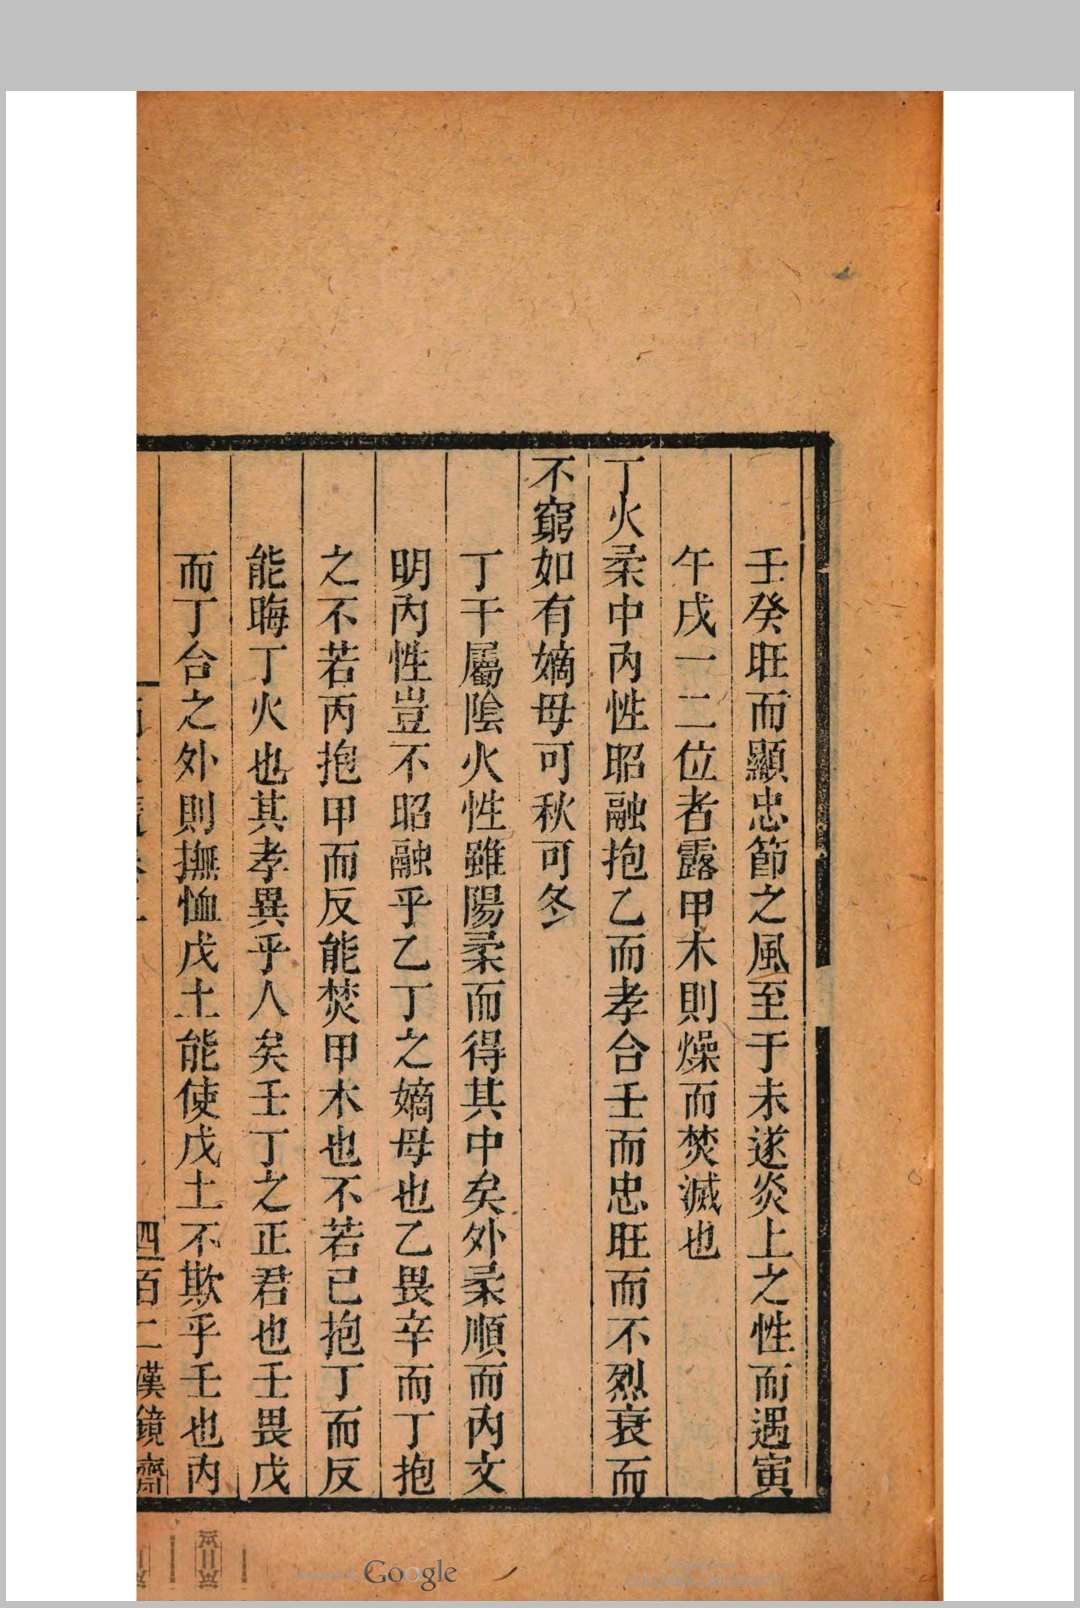 壬癸旺而顯忠節之風至于未遂炎上之性而遇寅
午戌一二位者露甲木則燥而焚滅也
丁火柔中内性昭融抱乙而孝合壬而忠旺而不烈衰而
不窮如有嫡母可秋可冬
丁干屬陰火性雖陽柔而得其中矣外柔順而内文
明内性豈不昭融乎乙丁之嫡母也乙畏辛而丁抱
之不若丙抱甲而反能焚甲木也不若己抱丁而反
能晦丁火也其孝異乎人矣壬丁之正君也壬畏戊
而丁合之外則撫恤戊土能使戊土不欺乎壬也内
四百二漢鏡齋
Google